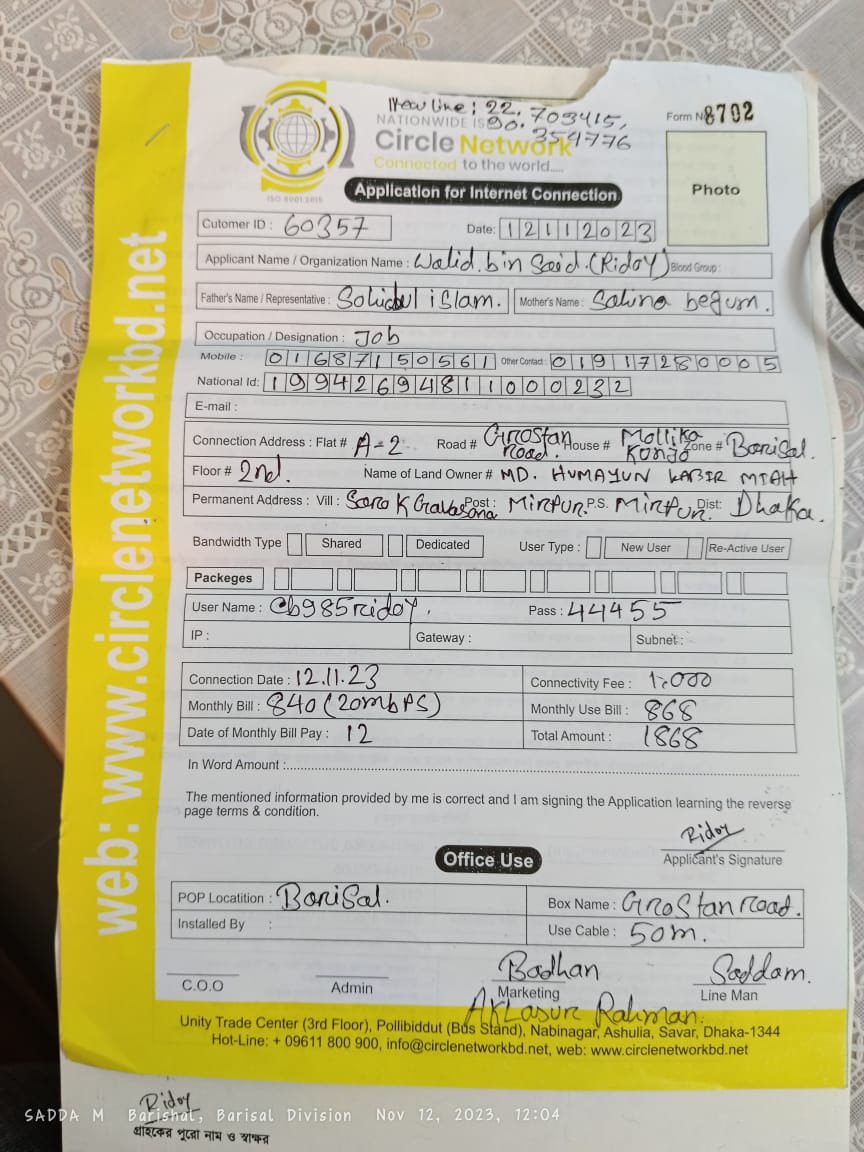 New line: 22.703415,
90.354776
NATIONWIDE IS
Form No 8702
Circle Network
Connected to the world.....
ISO 9001:2015
Application for Internet Connection
Photo
Cutomer ID : 60357 Date: 12112023
Applicant Name / Organization Name : Walid.bin Said.(Ridoy) Blood Group :
Father's Name / Representative : Sohidul islam. Mother's Name : Salina begum.
Occupation / Designation : Job
Mobile : 01687150561 Other Contact : 01917280005
National Id: 19942694811000232
E-mail :
Connection Address : Flat # A-2 Road # Grostan Road. House # Mollika Kunjo Zone # Barisal.
Floor # 2nd. Name of Land Owner # MD. HUMAYUN KABIR MIAH
Permanent Address : Vill : Post : Mirpur. P.S. Mirpur. Dist: Dhaka.
Bandwidth Type Shared Dedicated User Type : New User Re-Active User
Packeges
User Name : cb985ridoy. Pass : 44455
IP : Gateway : Subnet :
Connection Date : 12.11.23 Connectivity Fee : 1.000
Monthly Bill : 840 (20mbPS) Monthly Use Bill : 868
Date of Monthly Bill Pay : 12 Total Amount : 1868
In Word Amount :
The mentioned information provided by me is correct and I am signing the Application learning the reverse
page terms & condition.
Ridoy
Applicant's Signature
Office Use
POP Locatition : Barisal. Box Name : Grostan road.
Installed By : Use Cable : 50m.
Badhan Saddam.
C.O.O Admin Marketing Line Man
Rahman.
Unity Trade Center (3rd Floor), Pollibiddut (Bus Stand), Nabinagar, Ashulia, Savar, Dhaka-1344
Hot-Line: + 09611 800 900, info@circlenetworkbd.net, web: www.circlenetworkbd.net
web: www.circlenetworkbd.net
Ridoy
SADDA M Barishal, Barisal Division Nov 12, 2023, 12:04
গ্রাহকের পুরো নাম ও স্বাক্ষর